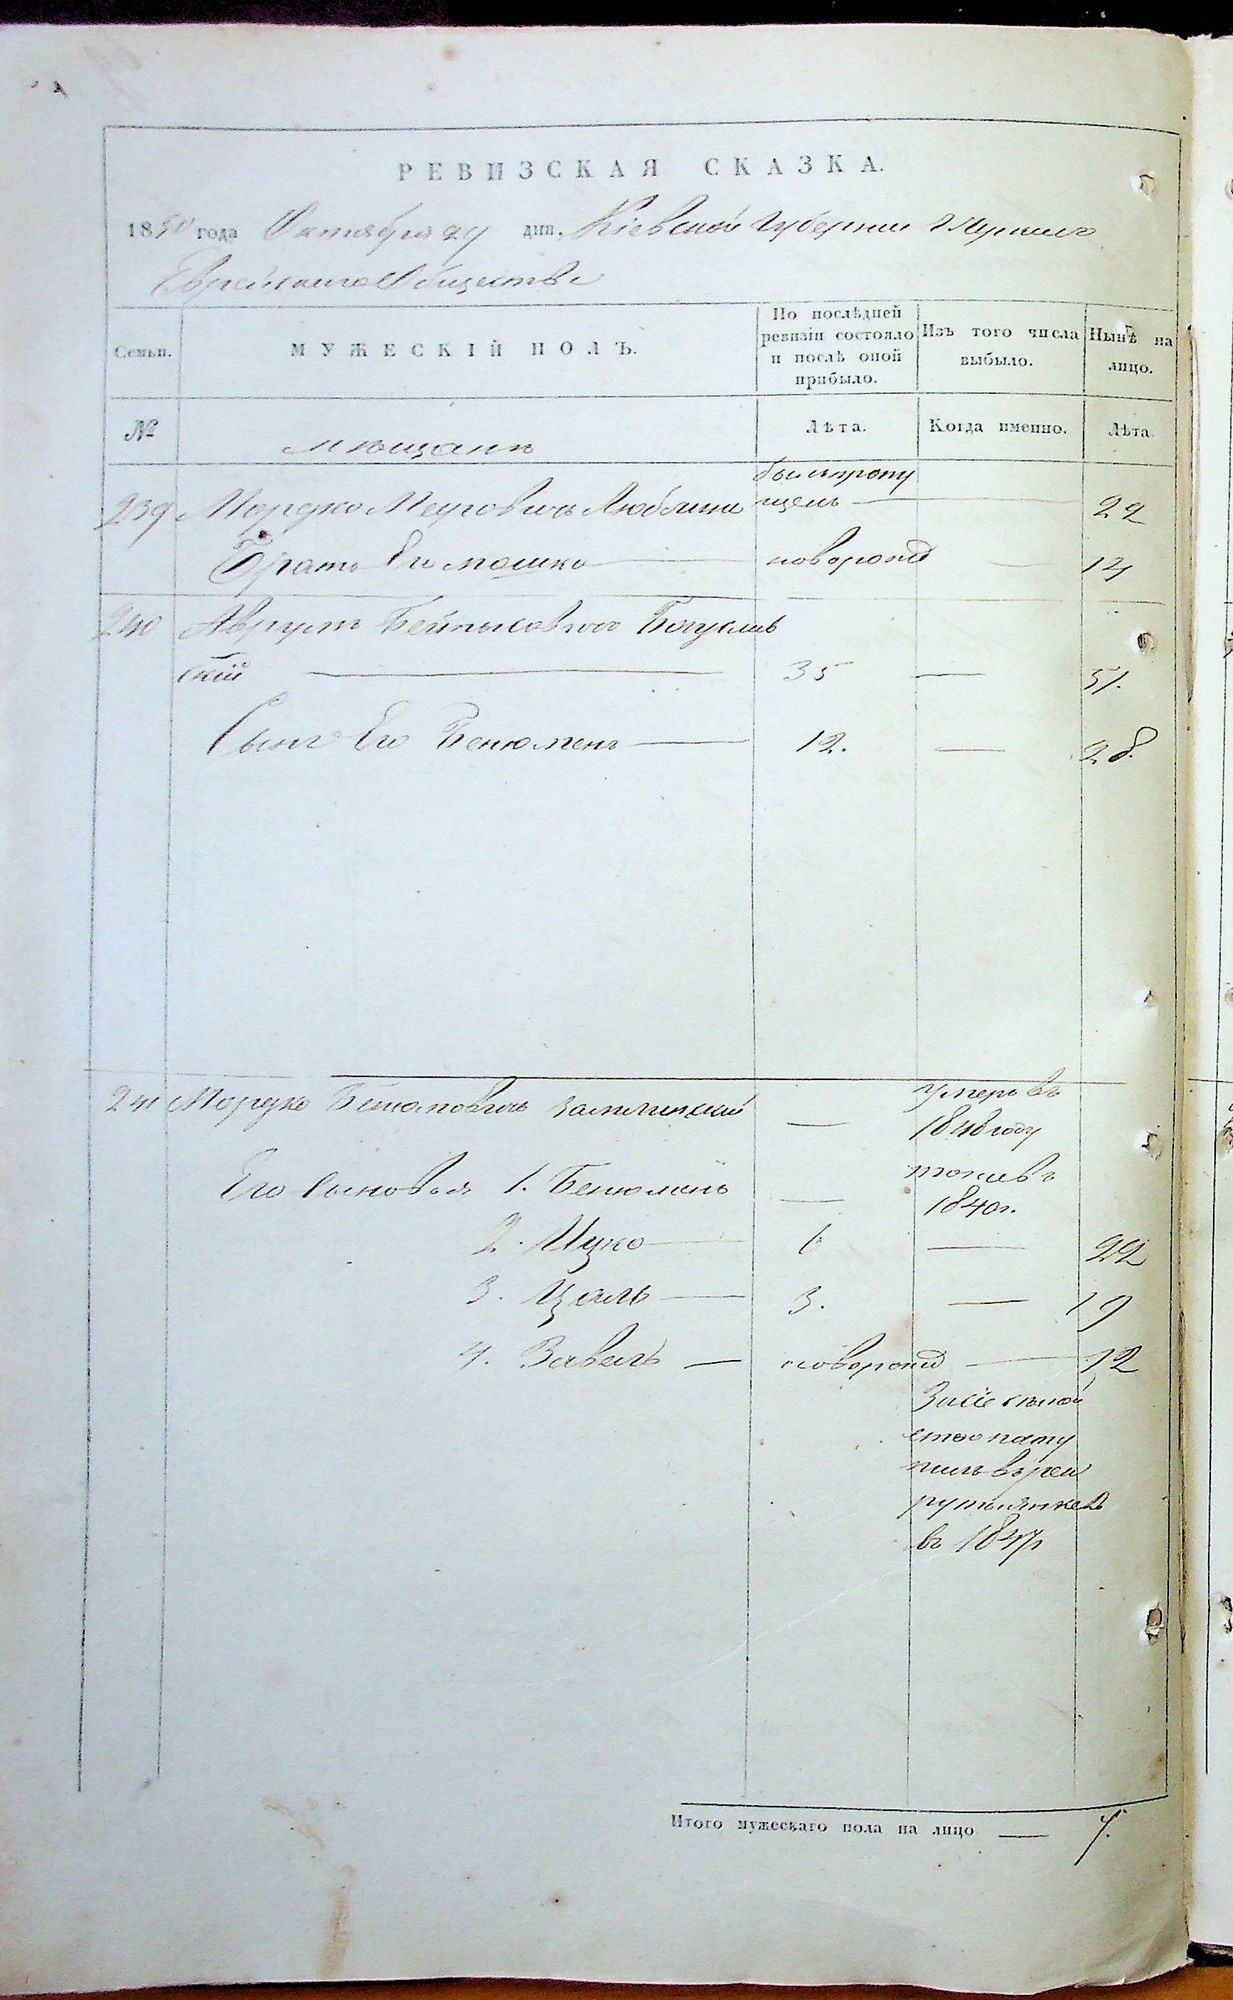 РЕВИЗСКАЯ СКАЗКА.
1850 года Октября 24 дня, Кіевской Губерніи
Еврейского Общества
Семьи. МУЖЕСКІЙ ПОЛЪ. По послѣдней ревизіи состояло и послѣ оной прибыло. Изъ того числа выбыло. Нынѣ на лицо.
№ мѣщане Лѣта. Когда именно. Лѣта.
239 Мордко Меуровичъ был пропущенъ — 22
Братъ Его Мошко — новорожд — 14
240 Аврумъ Богуслав
скій — 35 — 51.
Сынъ Его Бенюменъ — 12. — 28.
241 Мордко — умеръ въ
1848 году
Его сыновья 1. Бенюменъ — тоже въ
1840 г.
2. Ицко — 6 — 22
3. Цаль — 3. — 19
4. Завель — новорожд — 12
въ рек
рутъ
въ 1847
Итого мужескаго пола на лицо — 7.